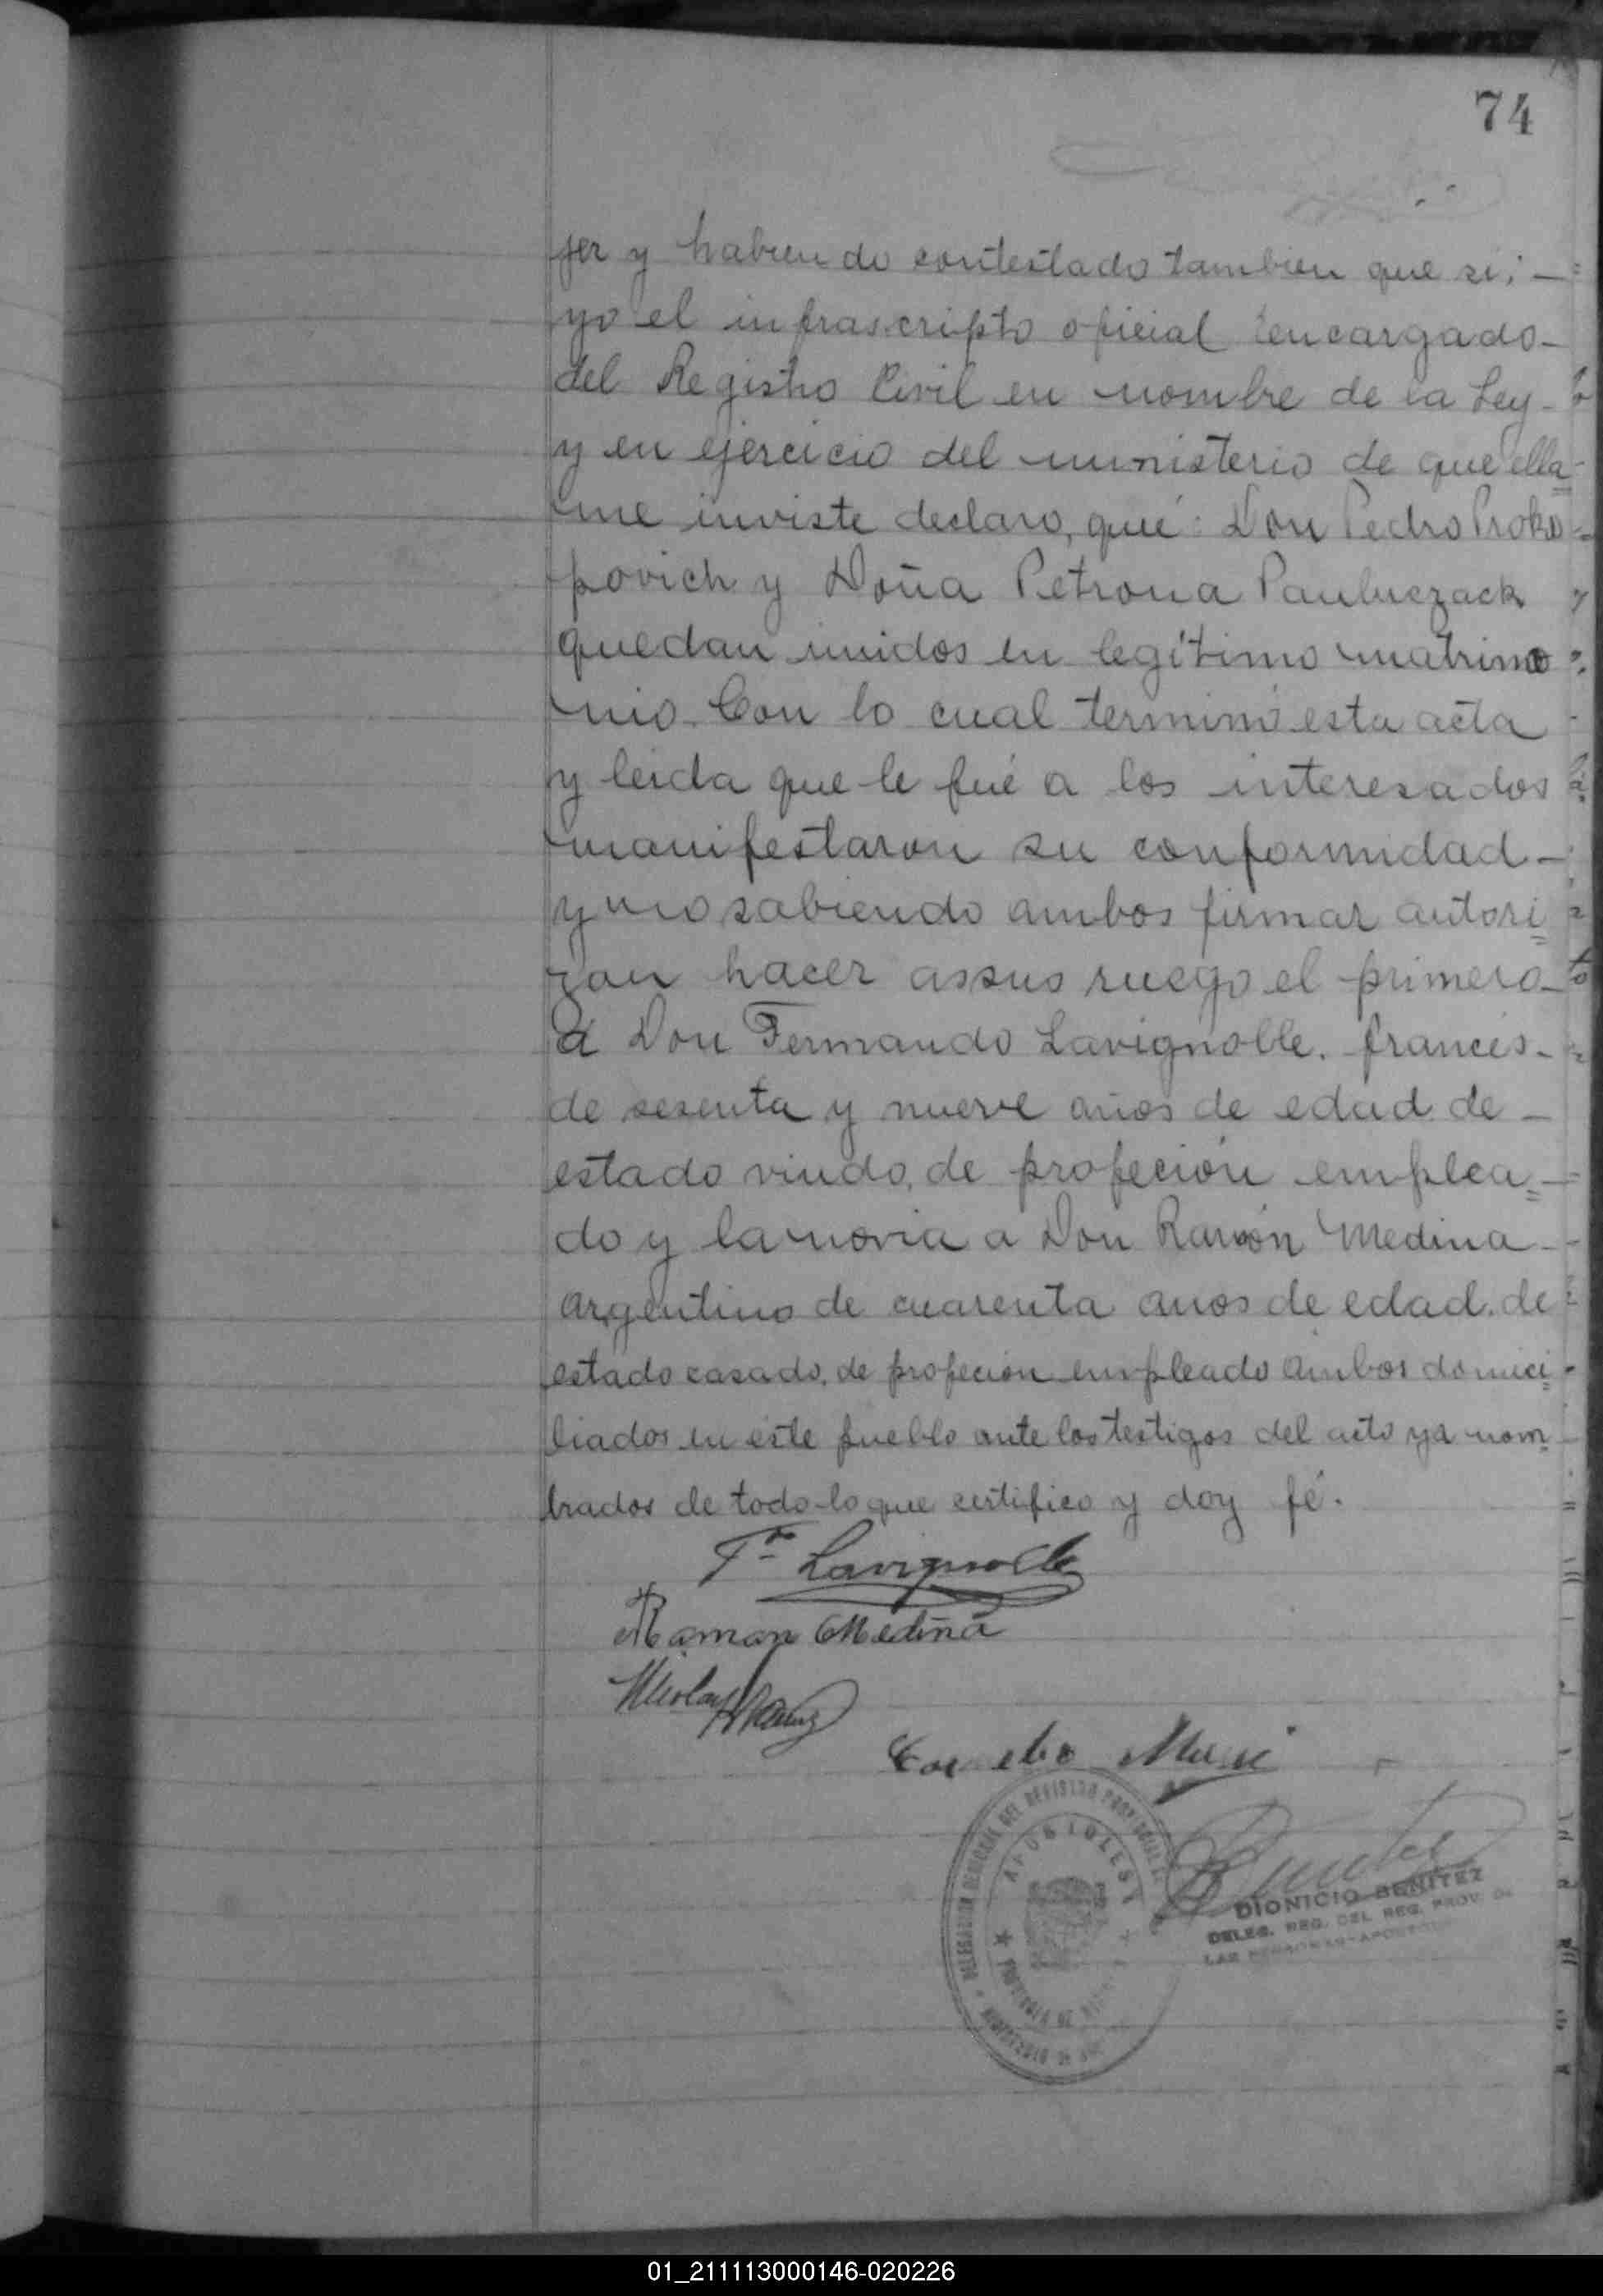 74
jer y habiendo contestado tambien que si; —
yo el infrascripto oficial encargado-
del Registro Civil en nombre de la Ley -
y en ejercicio del ministerio de que ella
me inviste declaro, qué: Don Pedro Proko=
povich y Doña Petrona Pauluczack
quedan unidos en legítimo matrimo
nio. Con lo cual terminó esta acta
y leida que le fué a los interesados
manifestaron su conformidad -
y no sabiendo ambos firmar autori=
zan hacer assus ruego el primero-
a Don Fermando Lavignolle. francés-
de sesenta y nueve años de edad de -
estado viudo, de profeción emplea=
do y la novia a Don Ramón Medina -
argentino de cuarenta anos de edad. de
estado casado, de profecion empleado ambos domici=
liados en este pueblo ante los testigos del acto ya nom=
brados de todo lo que certifico y doy fé.
Lavignolle
Raman Medina
Nicolas
DELEGACION REGIONAL DEL REGISTRO PROVINCIAL
APOSTOLES
DIONICIO BENITEZ
DELEG. REG. DEL REG. PROV. DE
LAS PERSONAS-APOSTOLES
01_211113000146-020226